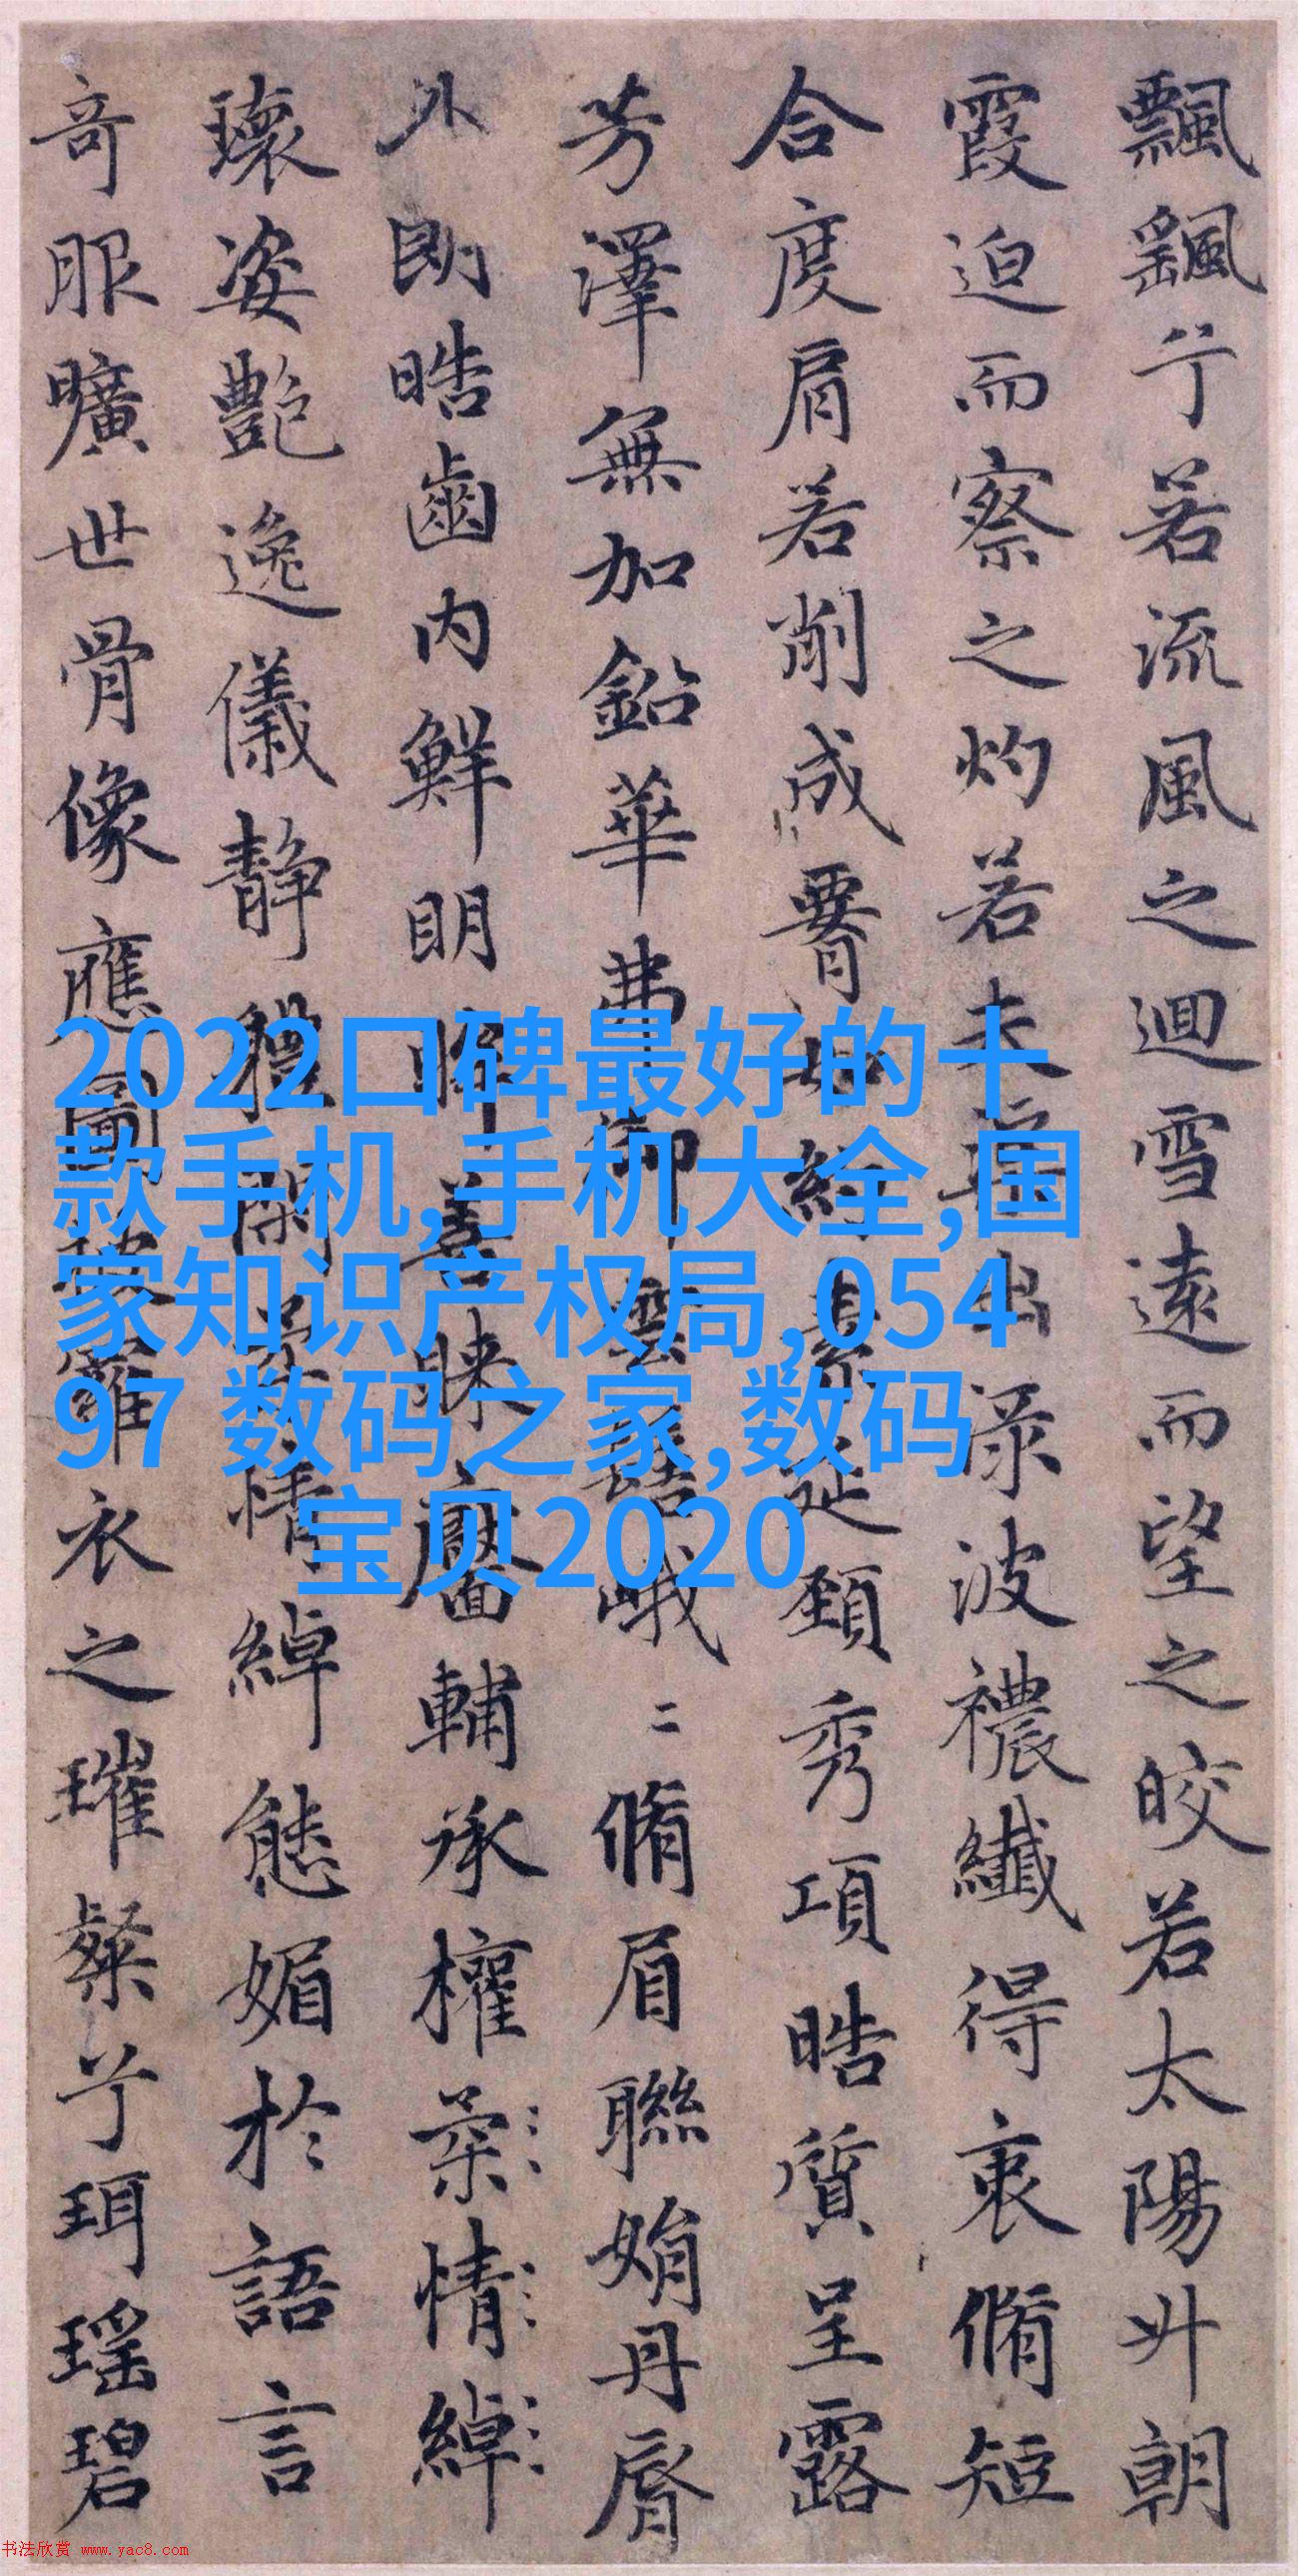 飄飖兮若流風之迴雪遠而望之皎若太陽升朝
霞迫而察之灼若夫出渌波襛纖得衷脩短
合度肩若削成𦝫如約素延頸秀項皓質呈露
芳澤無加鉛華弗御雲髻峨二脩眉聯娟丹脣
外朗皓齒内鮮明眸善睞靨輔承權柔情綽
瓌姿艷逸儀静體閑柔情綽態媚於語言
奇服曠世骨像應圖披羅衣之璀粲兮珥瑶碧
2022口碑最好的十
款手机,手机大全,国
家知识产权局,054
97 数码之家,数码
宝贝2020
书法欣赏 www.yac8.com